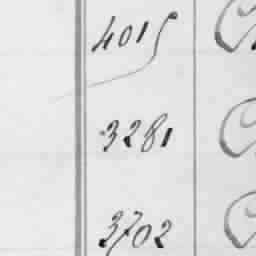 4015
3281
3702